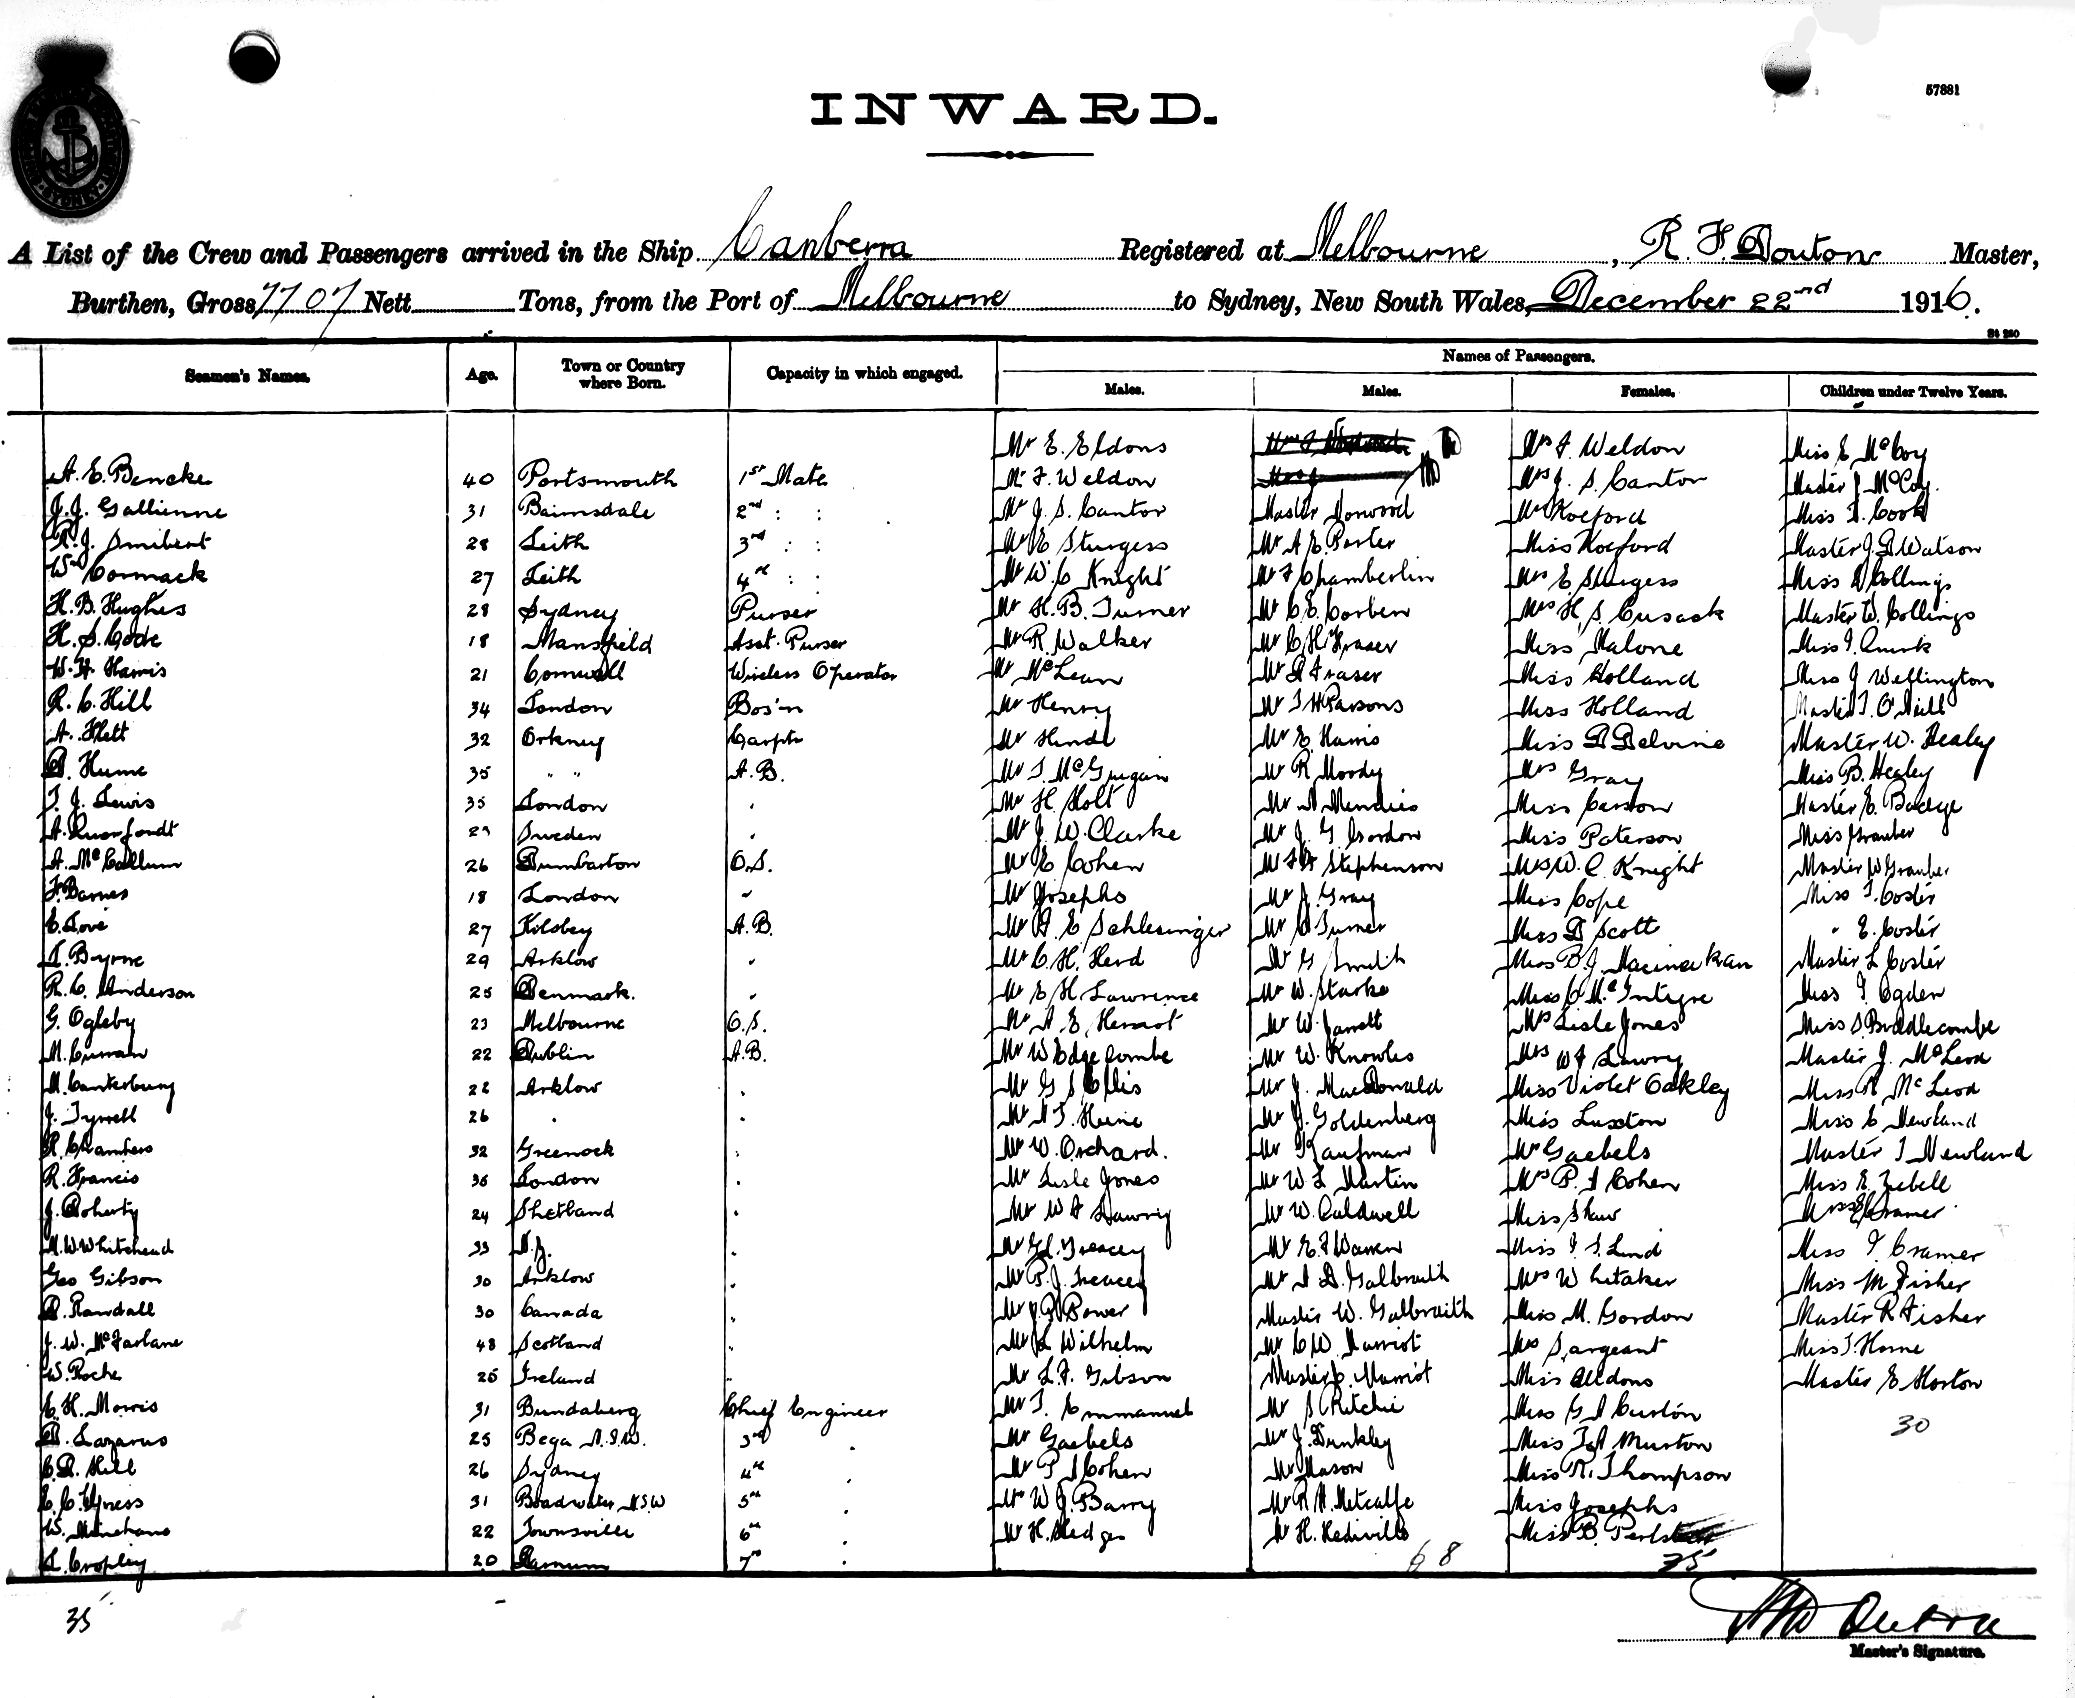 INWARD.
57881
A List of the Crew and Passengers arrived in the Ship Canberra Registered at Melbourne, R. F. Douton Master,
Burthen, Gross 7707 Nett Tons, from the Port of Melbourne to Sydney, New South Wales, December 22nd 1916.
Seamen's Names. Age. Town or Country where Born. Capacity in which engaged. Names of Passengers.
Males. Males. Females. Children under Twelve Years.
Mr E. Eldons Mrs F. Weldon Miss E McCoy
A. E. Bencke 40 Portsmouth 1st Mate Mr F. Weldon Mrs J. S. Cantor Master J McCoy
J. J. Gallienne 31 Bairnsdale 2nd : : Mr J. S. Cantor Master Norwood Koeford Miss Cook
R. J. Smibert 28 Leith 3rd : : Mr E Sturgess Mr A E Porter Miss Koeford Master J. D Watson
Wm Cormack 27 Leith 4th : : Mr W. C Knight Mr F Chamberlin Mrs E. Sturgess Miss Collings
H. B. Hughes 28 Sydney Purser Mr H. B. Turner Mr C. E. Corben Mrs H. S. Cusack Master W. Collings
H. S. Code 18 Mansfield Asst. Purser Mr R. Walker Mr C H Fraser Miss Malone Miss Quirk
W. H. Harris 21 Cornwall Wireless Operator Mr McLean Mr Fraser Miss Holland Miss J Wellington
R. C. Hill 34 London Bos'n Mr Henry Mr T H Parsons Miss Holland Master T. O'Neill
A. Flett 32 Orkney Carptr Mr Hindl Mr E. Harris Miss D Delvine Master W. Healey
D. Hume 35 " " A. B. Mr T. McGuigan Mr R Moody Mrs Gray Miss B. Healey
T. J. Lewis 35 London . Mr H. Holt Mr Menzies Miss Carson Master E. Badge
A. Querfordt 29 Sweden . Mr J. W. Clarke Mr J. G. Gordon Miss Paterson Miss Grauber
A. McCallum 26 Dumbarton O. S. Mr E Cohen Mr Stephenson Mrs W. C. Knight Master W Grauber
F. Barnes 18 London " Mr Josephs Mr J. Gray Miss Cope Miss Coster
C. Love 27 Kilsbey A. B. Mr A. E Schlesinger Mr Turner Miss D Scott " E. Coster
Byrne 29 Arklow . Mr C. H. Herd Mr G Smith Miss B. J. Macinerkan Master L Coster
R. C. Anderson 25 Denmark. . Mr E H Lawrence Mr W. Starke Miss C McIntyre Miss Ogden
G. Ogleby 23 Melbourne O. S. Mr A E. Herriot Mr W Jarrett Mrs Lisle Jones Miss S Biddlecombe
M. Curran 22 Dublin A. B. Mr W Edgecombe Mr W. Knowles Mrs W F Lawry Master J. McLeod
M. Canterbury 22 Arklow . Mr G S Ellis Mr J. MacDonald Miss Violet Oakley Miss McLeod
J. Tyrrell 26 . . Heine Mr J. Goldenberg Miss Luxton Miss E Newland
R. Chambers 32 Greenock . Mr W. Orchard. Mr Kaufman Mrs Gaebels Master T Newland
R. Francis 36 London . Mr Lisle Jones Mr W. L Martin Mrs P. I Cohen Miss E. Zebell
J. Doherty 24 Shetland . Mr W F Lawry Mr W. Caldwell Miss Shaw Cramer
M. W. Whitehead 33 N. Z. . Treacey Mr E. J Warren Miss Lind Miss Cramer
Geo Gibson 30 Arklow . Mr P. J. Treacey Mr D. Galbraith Mrs Whitaker Miss M Fisher
D. Randall 30 Canada . Power Master W. Galbraith Miss M. Gordon Master R Fisher
J. W. McFarlane 48 Scotland . Wilhelm Mr C W. Marriot Mrs Sargeant Miss Horne
W. Roche 25 Ireland " Mr L. F. Gibson Master C. Marriot Miss Eldons Master E Horton
C. H. Morris 31 Bundaberg Chief Engineer Mr T. Emmanuel Mr S Ritchie Miss Curton
D. Lazarus 25 Bega N. S. W. 3rd . Mr Gaebels Mr J. Dunkley Miss Murton 30
C. R. Hill 26 Sydney 4th . Mr P I Cohen Mr Mason Miss R. Thompson
C. C. Hyness 31 Broadwater N. S W 5th . Mr W J. Barry Mr R H. Metcalfe Miss Josephs
W. Minehane 22 Townsville 6th . Mr H. Hedge Mr H. Hedivills Miss B.
L. Cropley 20 7th : 68 35
35
Master's Signature.